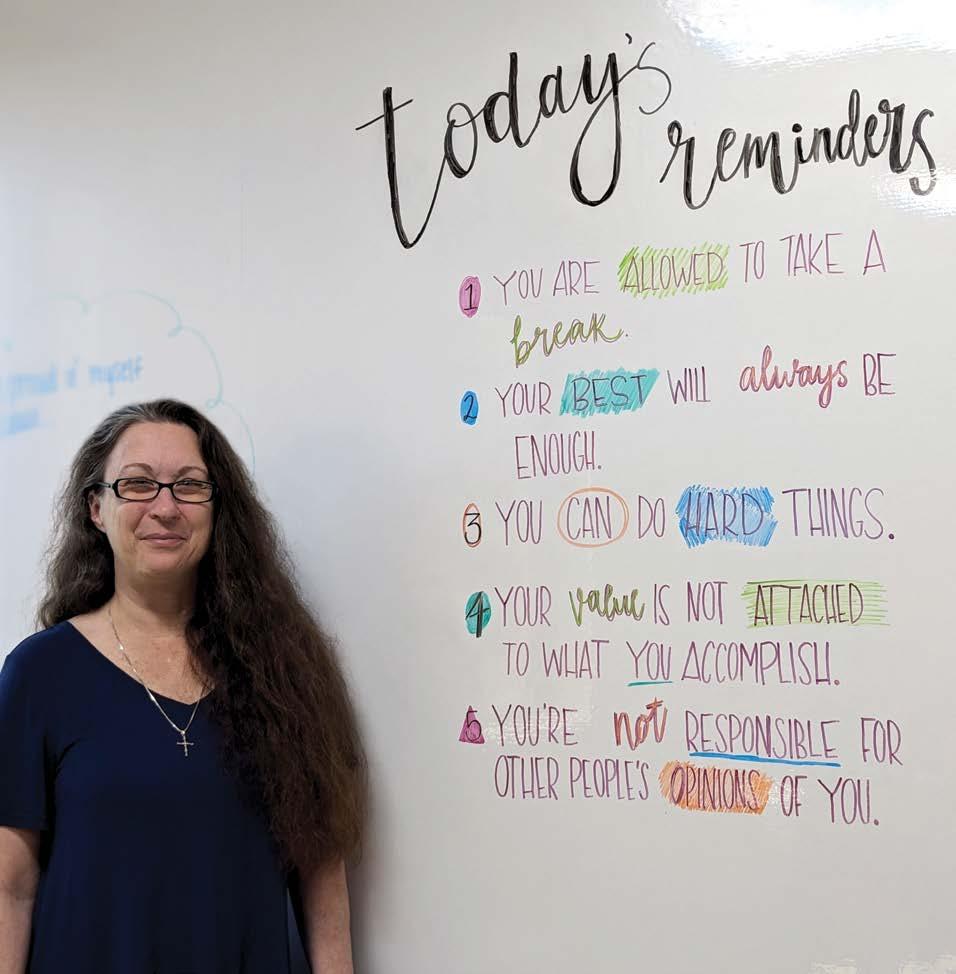 today's
reminders
1 YOU ARE ALLOWED TO TAKE A
break.
2 YOUR BEST WILL always BE
ENOUGH.
3 YOU CAN DO HARD THINGS.
4 YOUR value IS NOT ATTACHED
TO WHAT YOU ACCOMPLISH.
5 YOU'RE not RESPONSIBLE FOR
OTHER PEOPLE'S OPINIONS OF YOU.
proud of myself